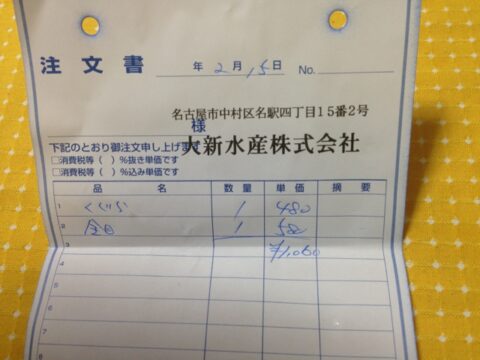 注文書
年 2 月 15 日 No.
名古屋市中村区名駅四丁目15番2号
様
下記のとおり御注文申し上げます
大新水産株式会社
□消費税等( )%抜き単価です
□消費税等( )%込み単価です
品名 数量 単価 摘要
1 くじら 1 480
2 金目 1 580
3 ¥1,060
4
5
6
7